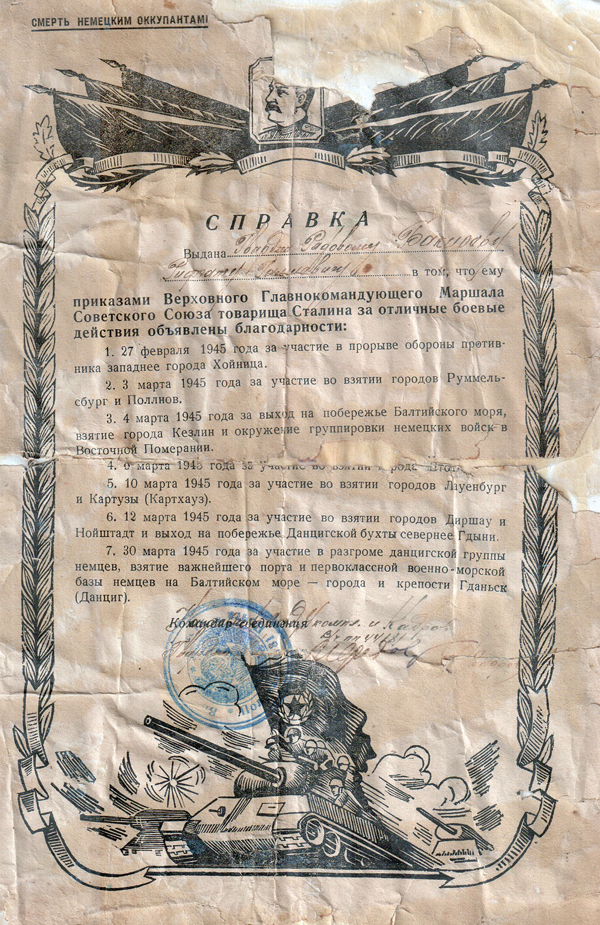 СМЕРТЬ НЕМЕЦКИМ ОККУПАНТАМ
СПРАВКА
Выдана
в том, что ему
приказами Верховного Главнокомандующего Маршала
Советского Союза товарища Сталина за отличные боевые
действия объявлены благодарности:
1. 27 февраля 1945 года за участие в прорыве обороны против-
ника западнее города Хойница.
2. 3 марта 1945 года за участие во взятии городов Руммель-
сбург и Поллнов.
3. 4 марта 1945 года за выход на побережье Балтийского моря,
взятие города Кезлин и окружение группировки немецких войск в
Восточной Померании.
4. марта 1945 года за участие во взятии города
5. 10 марта 1945 года за участие во взятии городов Лауенбург
и Картузы (Картхауз).
6. 12 марта 1945 года за участие во взятии городов Диршау и
Нойштадт и выход на побережье Данцигской бухты севернее Гдыни.
7. 30 марта 1945 года за участие в разгроме данцигской группы
немцев, взятие важнейшего порта и первоклассной военно-морской
базы немцев на Балтийском море — города и крепости Гданьск
(Данциг).
Командир соединения